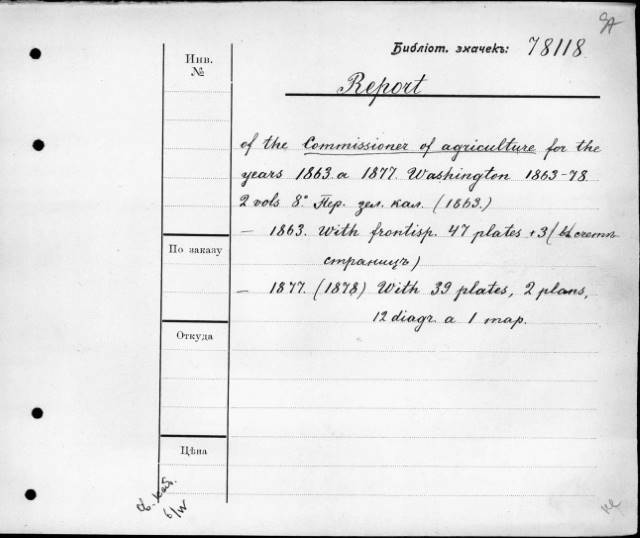 Библіот. значекъ: 78118
Инв.
№
Report
of the Commissioner of agriculture for the
years 1863 a 1877. Washington 1863-78
2 vols 8°. Пер. зел. кал. (1863.)
— 1863. With frontisp. 47 plates + 3 (въ счетъ
страницъ)
По заказу
— 1877. (1878) With 39 plates, 2 plans,
12 diagr. a 1 map.
Откуда
Цѣна